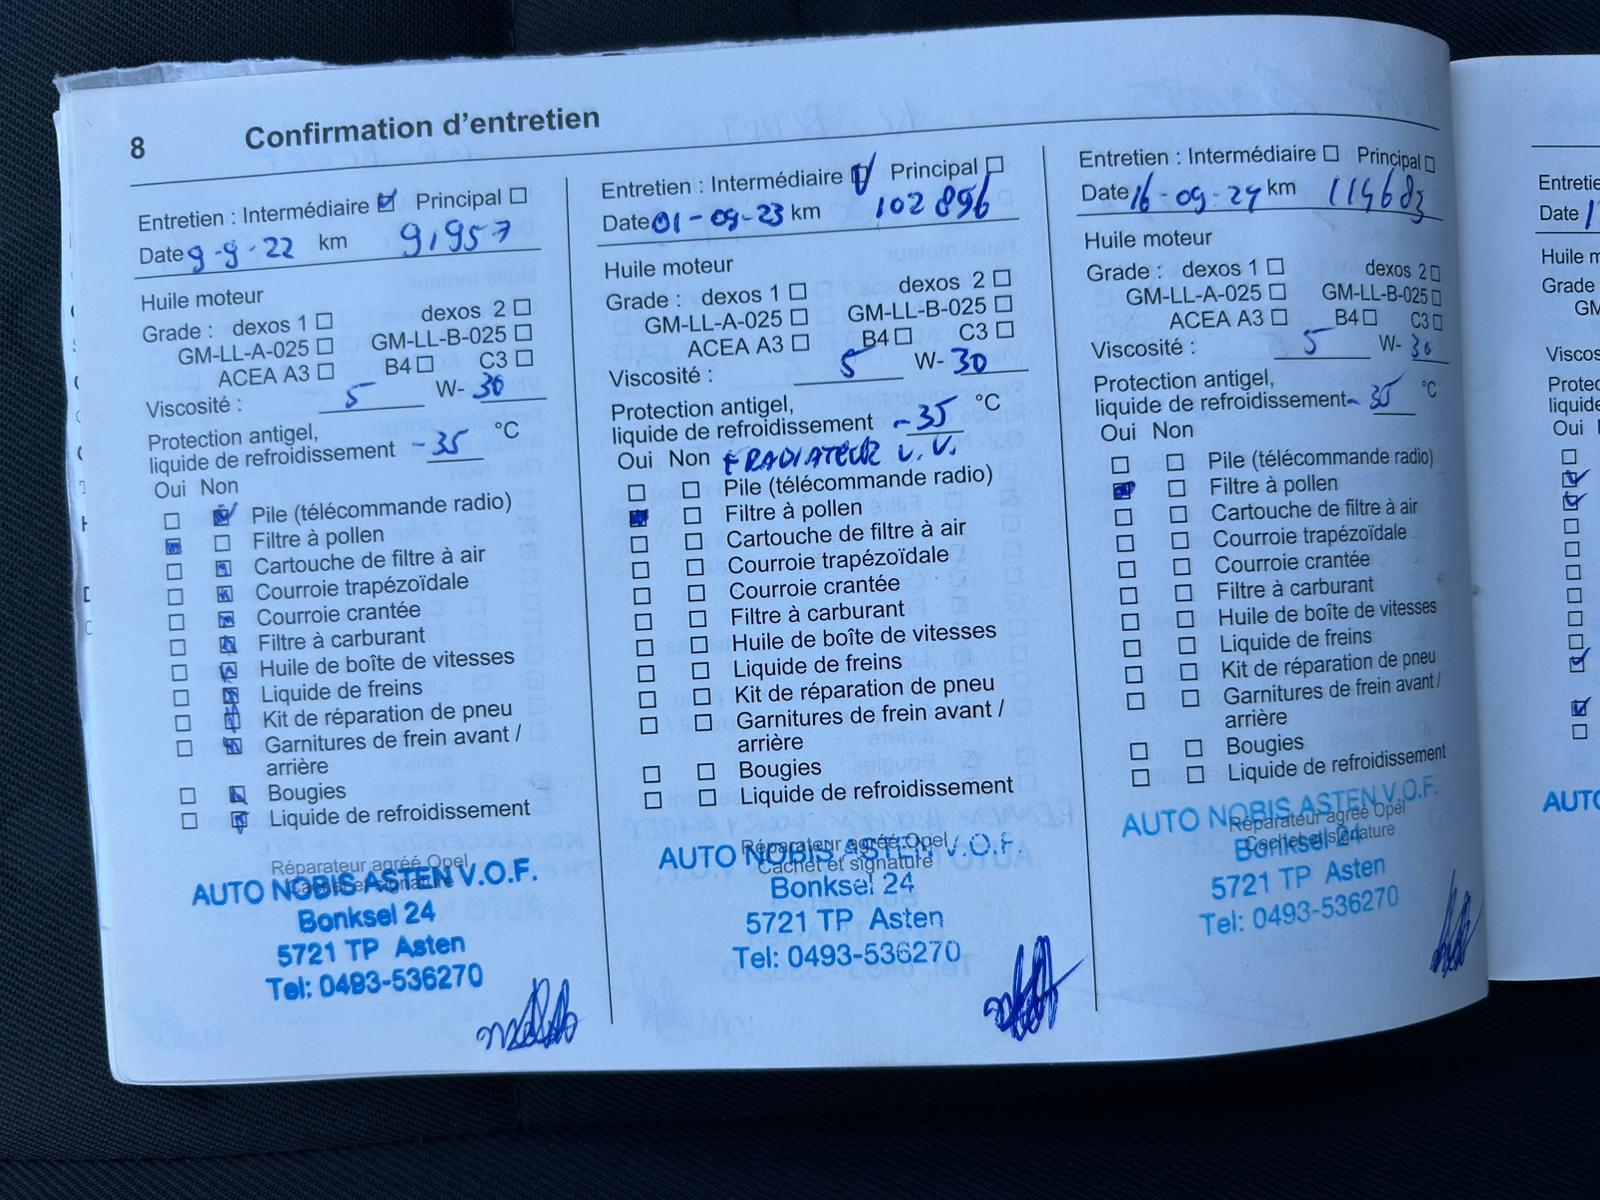 8 Confirmation d'entretien
Entretien : Intermédiaire Principal
Date 9-9-22 km 91957
Huile moteur
Grade : dexos 1 dexos 2
GM-LL-A-025 GM-LL-B-025
ACEA A3 B4 C3
Viscosité : 5 W- 30
Protection antigel,
liquide de refroidissement -35 °C
Oui Non
Pile (télécommande radio)
Filtre à pollen
Cartouche de filtre à air
Courroie trapézoïdale
Courroie crantée
Filtre à carburant
Huile de boîte de vitesses
Liquide de freins
Kit de réparation de pneu
Garnitures de frein avant /
arrière
Bougies
Liquide de refroidissement
Réparateur agréé Opel
Cachet et signature
AUTO NOBIS ASTEN V.O.F.
Bonksel 24
5721 TP Asten
Tel: 0493-536270
Entretien : Intermédiaire Principal
Date 01-09-23 km 102896
Huile moteur
Grade : dexos 1 dexos 2
GM-LL-A-025 GM-LL-B-025
ACEA A3 B4 C3
Viscosité : 5 W- 30
Protection antigel,
liquide de refroidissement -35 °C
Oui Non RADIATEUR V.V.
Pile (télécommande radio)
Filtre à pollen
Cartouche de filtre à air
Courroie trapézoïdale
Courroie crantée
Filtre à carburant
Huile de boîte de vitesses
Liquide de freins
Kit de réparation de pneu
Garnitures de frein avant /
arrière
Bougies
Liquide de refroidissement
Réparateur agréé Opel
Cachet et signature
AUTO NOBIS ASTEN V.O.F.
Bonksel 24
5721 TP Asten
Tel: 0493-536270
Entretien : Intermédiaire Principal
Date 16-09-24 km 114683
Huile moteur
Grade : dexos 1 dexos 2
GM-LL-A-025 GM-LL-B-025
ACEA A3 B4 C3
Viscosité : 5 W- 30
Protection antigel,
liquide de refroidissement - 35 °C
Oui Non
Pile (télécommande radio)
Filtre à pollen
Cartouche de filtre à air
Courroie trapézoïdale
Courroie crantée
Filtre à carburant
Huile de boîte de vitesses
Liquide de freins
Kit de réparation de pneu
Garnitures de frein avant /
arrière
Bougies
Liquide de refroidissement
AUTO NOBIS ASTEN V.O.F.
Réparateur agréé Opel
Cachet et signature
Bonksel 24
5721 TP Asten
Tel: 0493-536270
Date
Huile
Grade
Oui
AUTO